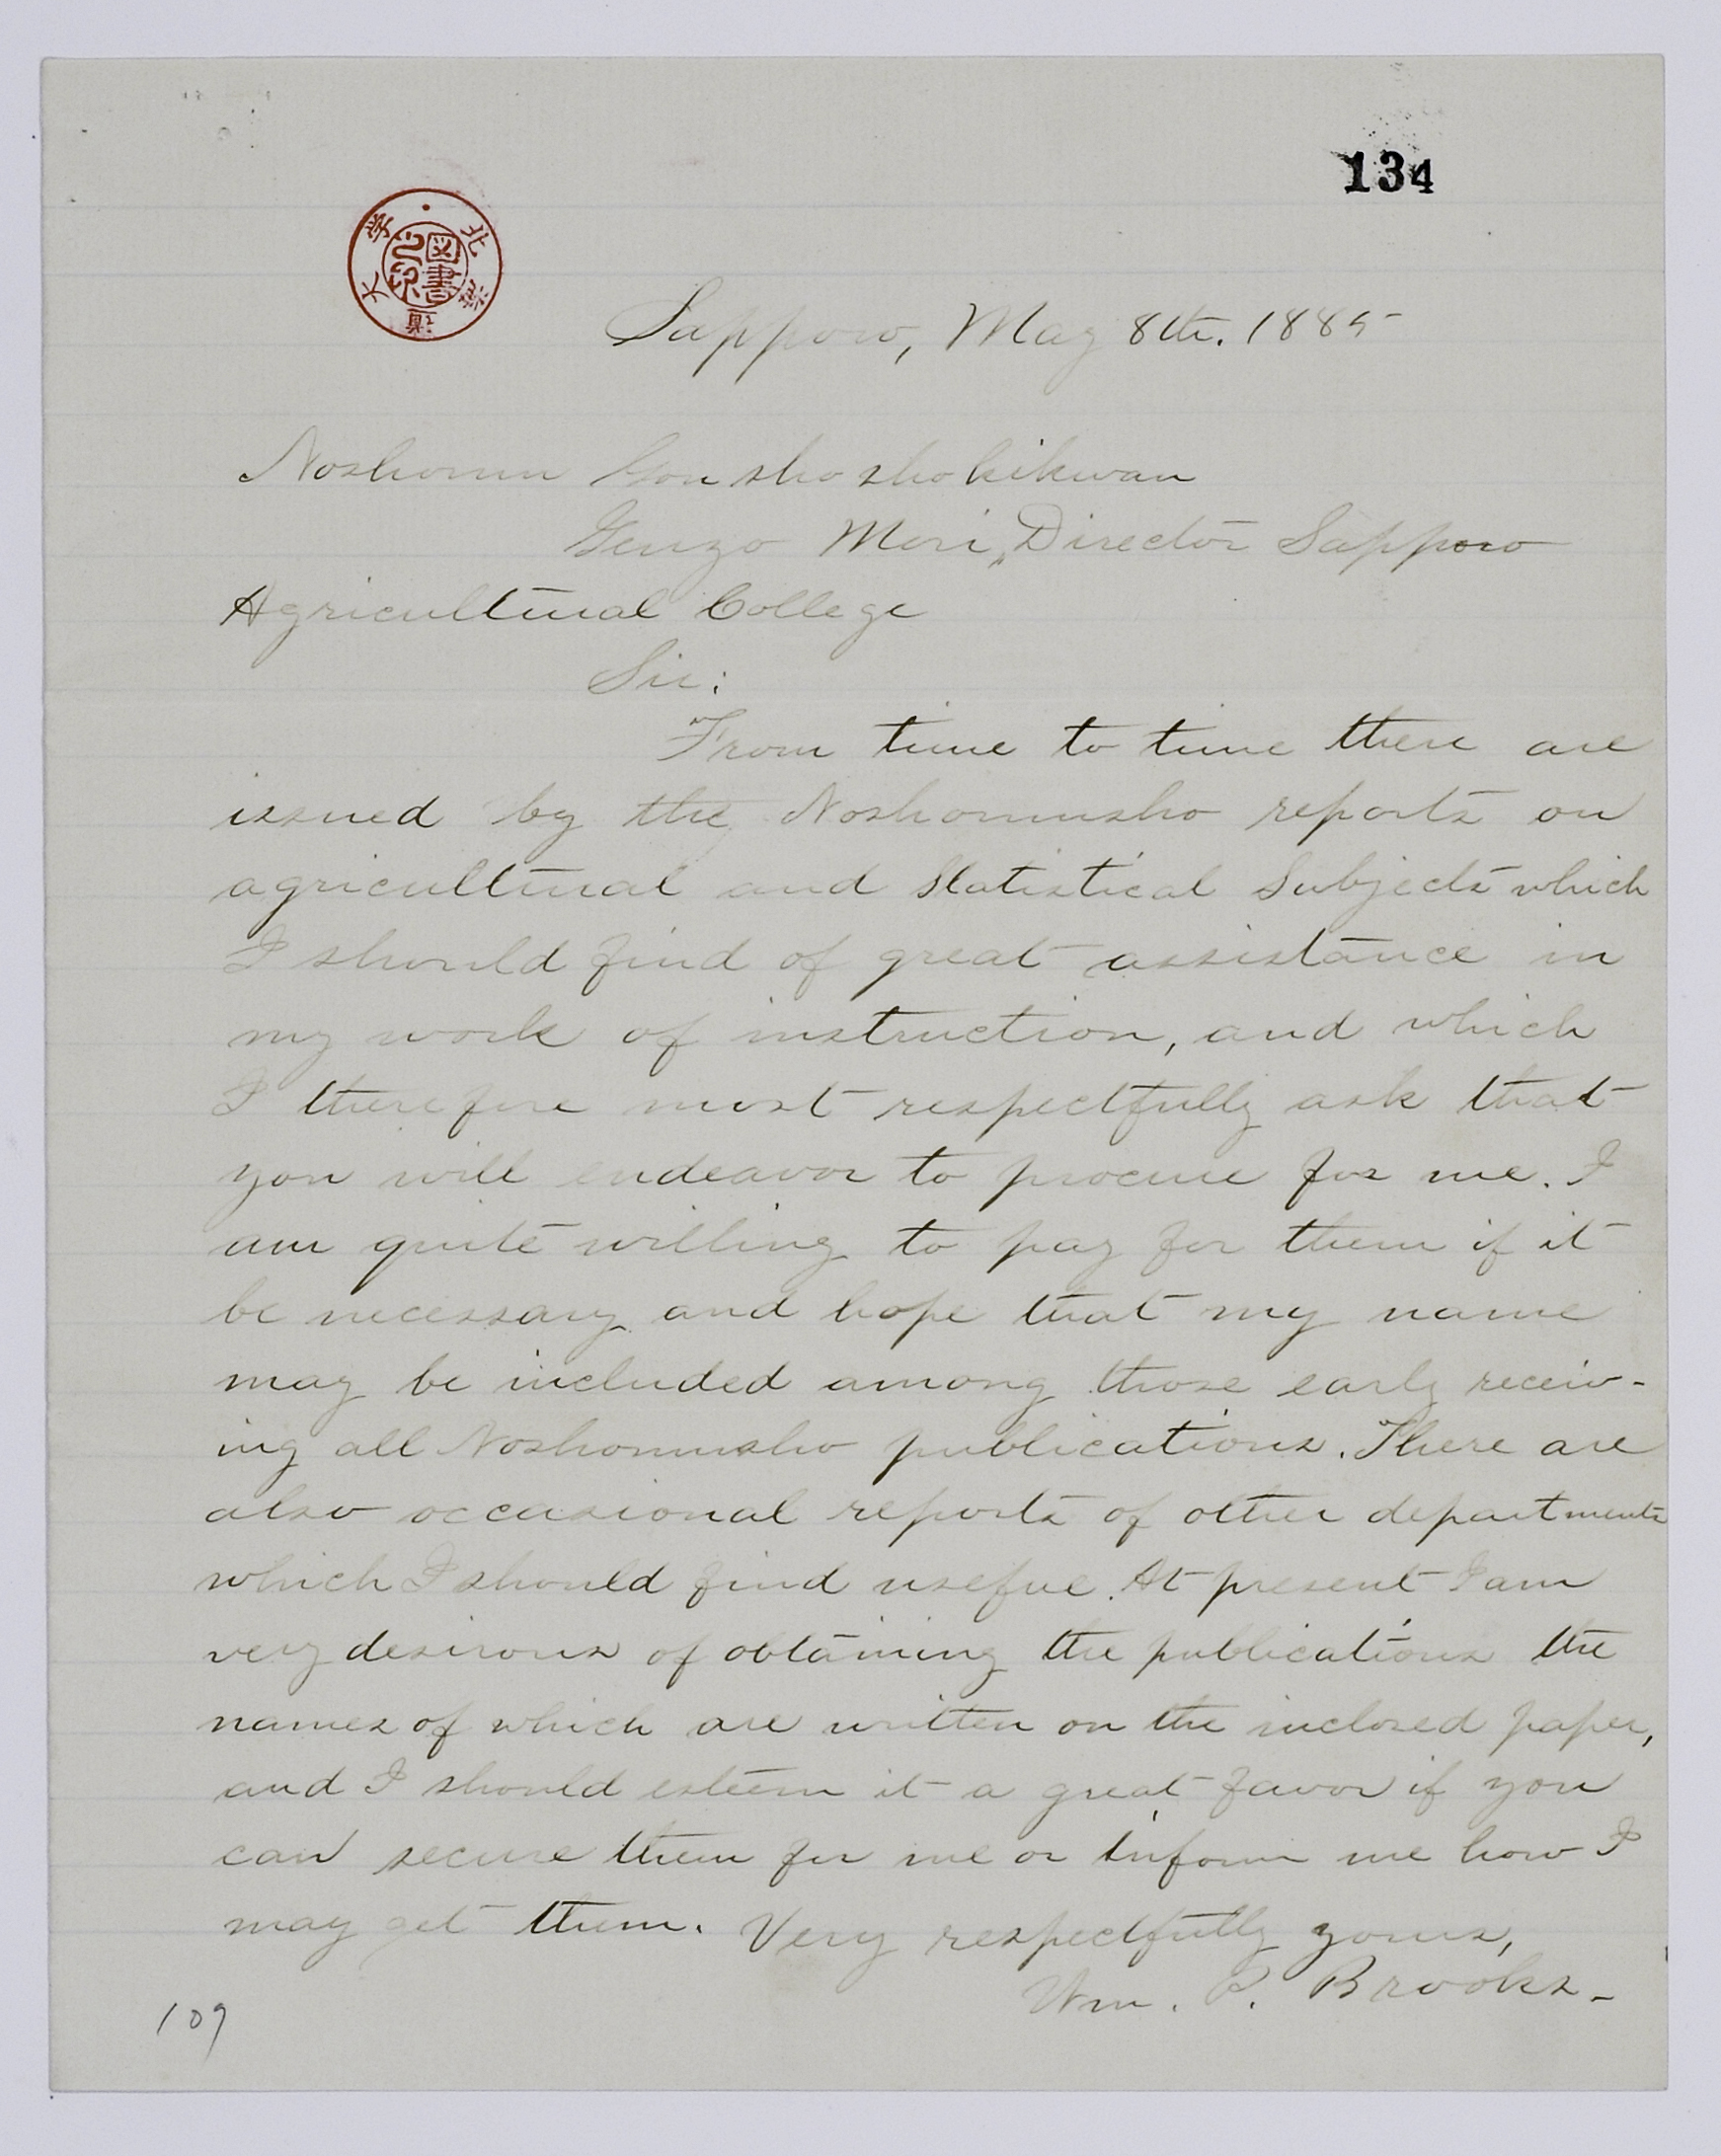 134
北海道大学
図書之印
Sapporo, May 8th. 1885
Noshomu Gonshoshokikwan
Genzo Mori, Director Sapporo
Agricultural College
Sir:
From time to time there are
issued by the Noshomusho reports on
agricultural and statistical subjects which
I should find of great assistance in
my work of instruction, and which
I therefore most respectfully ask that
you will endeavor to procure for me. I
am quite willing to pay for them if it
be necessary and hope that my name
may be included among those early receiv-
ing all Noshomusho publications. There are
also occasional reports of other departments
which I should find useful. At present I am
very desirous of obtaining the publications the
names of which are written on the inclosed paper,
and I should esteem it a great favor if you
can secure them for me or inform me how I
may get them. Very respectfully yours,
Wm. P. Brooks.
109